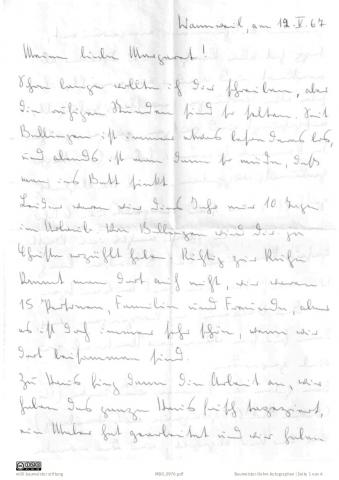 Wannweil, am 12. V. 67
Meine liebe Margaret!
Schon lange wollte ich Dir schreiben, aber
die ruhigen Stunden sind so selten. Mit
ist immer etwas los,
und abends ist man dann so müde, daß
man ins Bett sinkt.
Leider waren wir dies Jahr nur 10 Tage
im Urlaub. wird Dir ja
erzählt haben. Richtig zur Ruhe
kommt man dort auch nicht, wir waren
15 Personen, Familie und Freunde, aber
es ist doch immer sehr schön, wenn wir
dort beisammen sind.
Zu Haus fing dann die Arbeit an, wir
haben das ganze Haus frisch tapeziert,
ein Maler hat gearbeitet und wir haben
willi baumeister stiftung
Seite 1 von 4